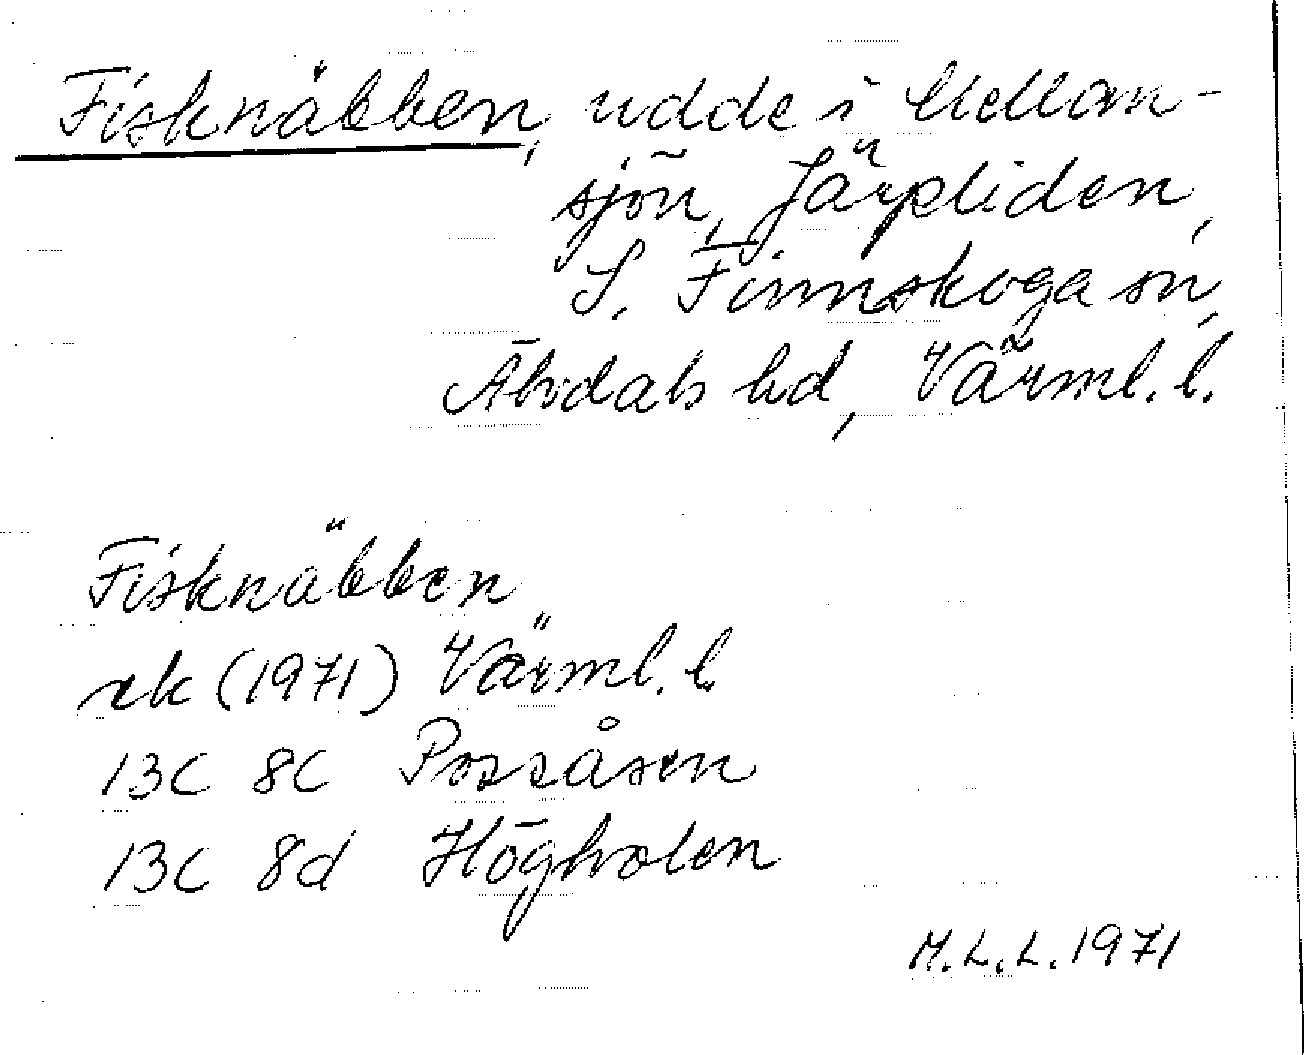 Fisknäbben, udde i Mellan-
sjön, Järpliden,
S. Finnskoga sn,
Älvdals hd, Värml. l.
Fisknäbben
ek (1971) Värml. l.
13C 8c Possåsen
13C 8d Högholen
M.L.L. 1971